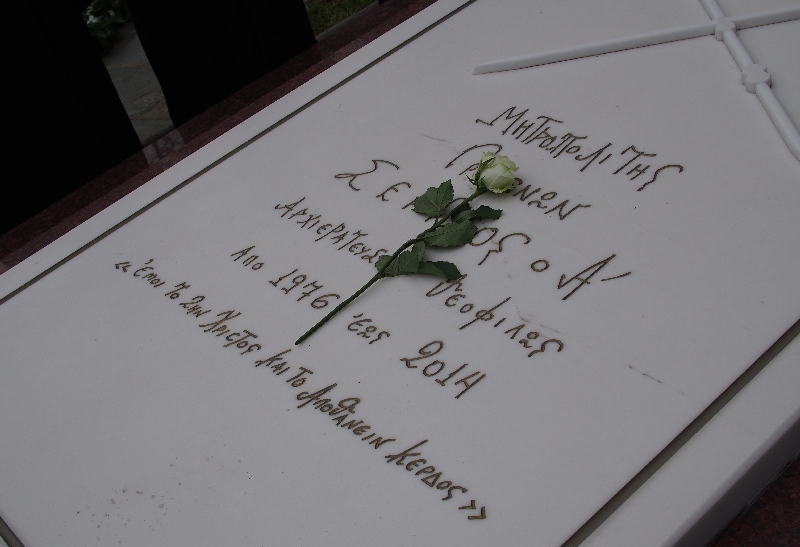 ΜΗΤΡΟΠΟΛΙΤΗΣ
Ο Α΄
ΑΡΧΙΕΡΑΤΕΥΣΑΣ ΘΕΟΦΙΛΩΣ
ΑΠΟ 1976 ΈΩΣ 2014
«ΈΜΟΙ ΤΟ ΖΗΝ ΧΡΙΣΤΟΣ ΚΑΙ ΤΟ ΑΠΟΘΑΝΕΙΝ ΚΕΡΔΟΣ»